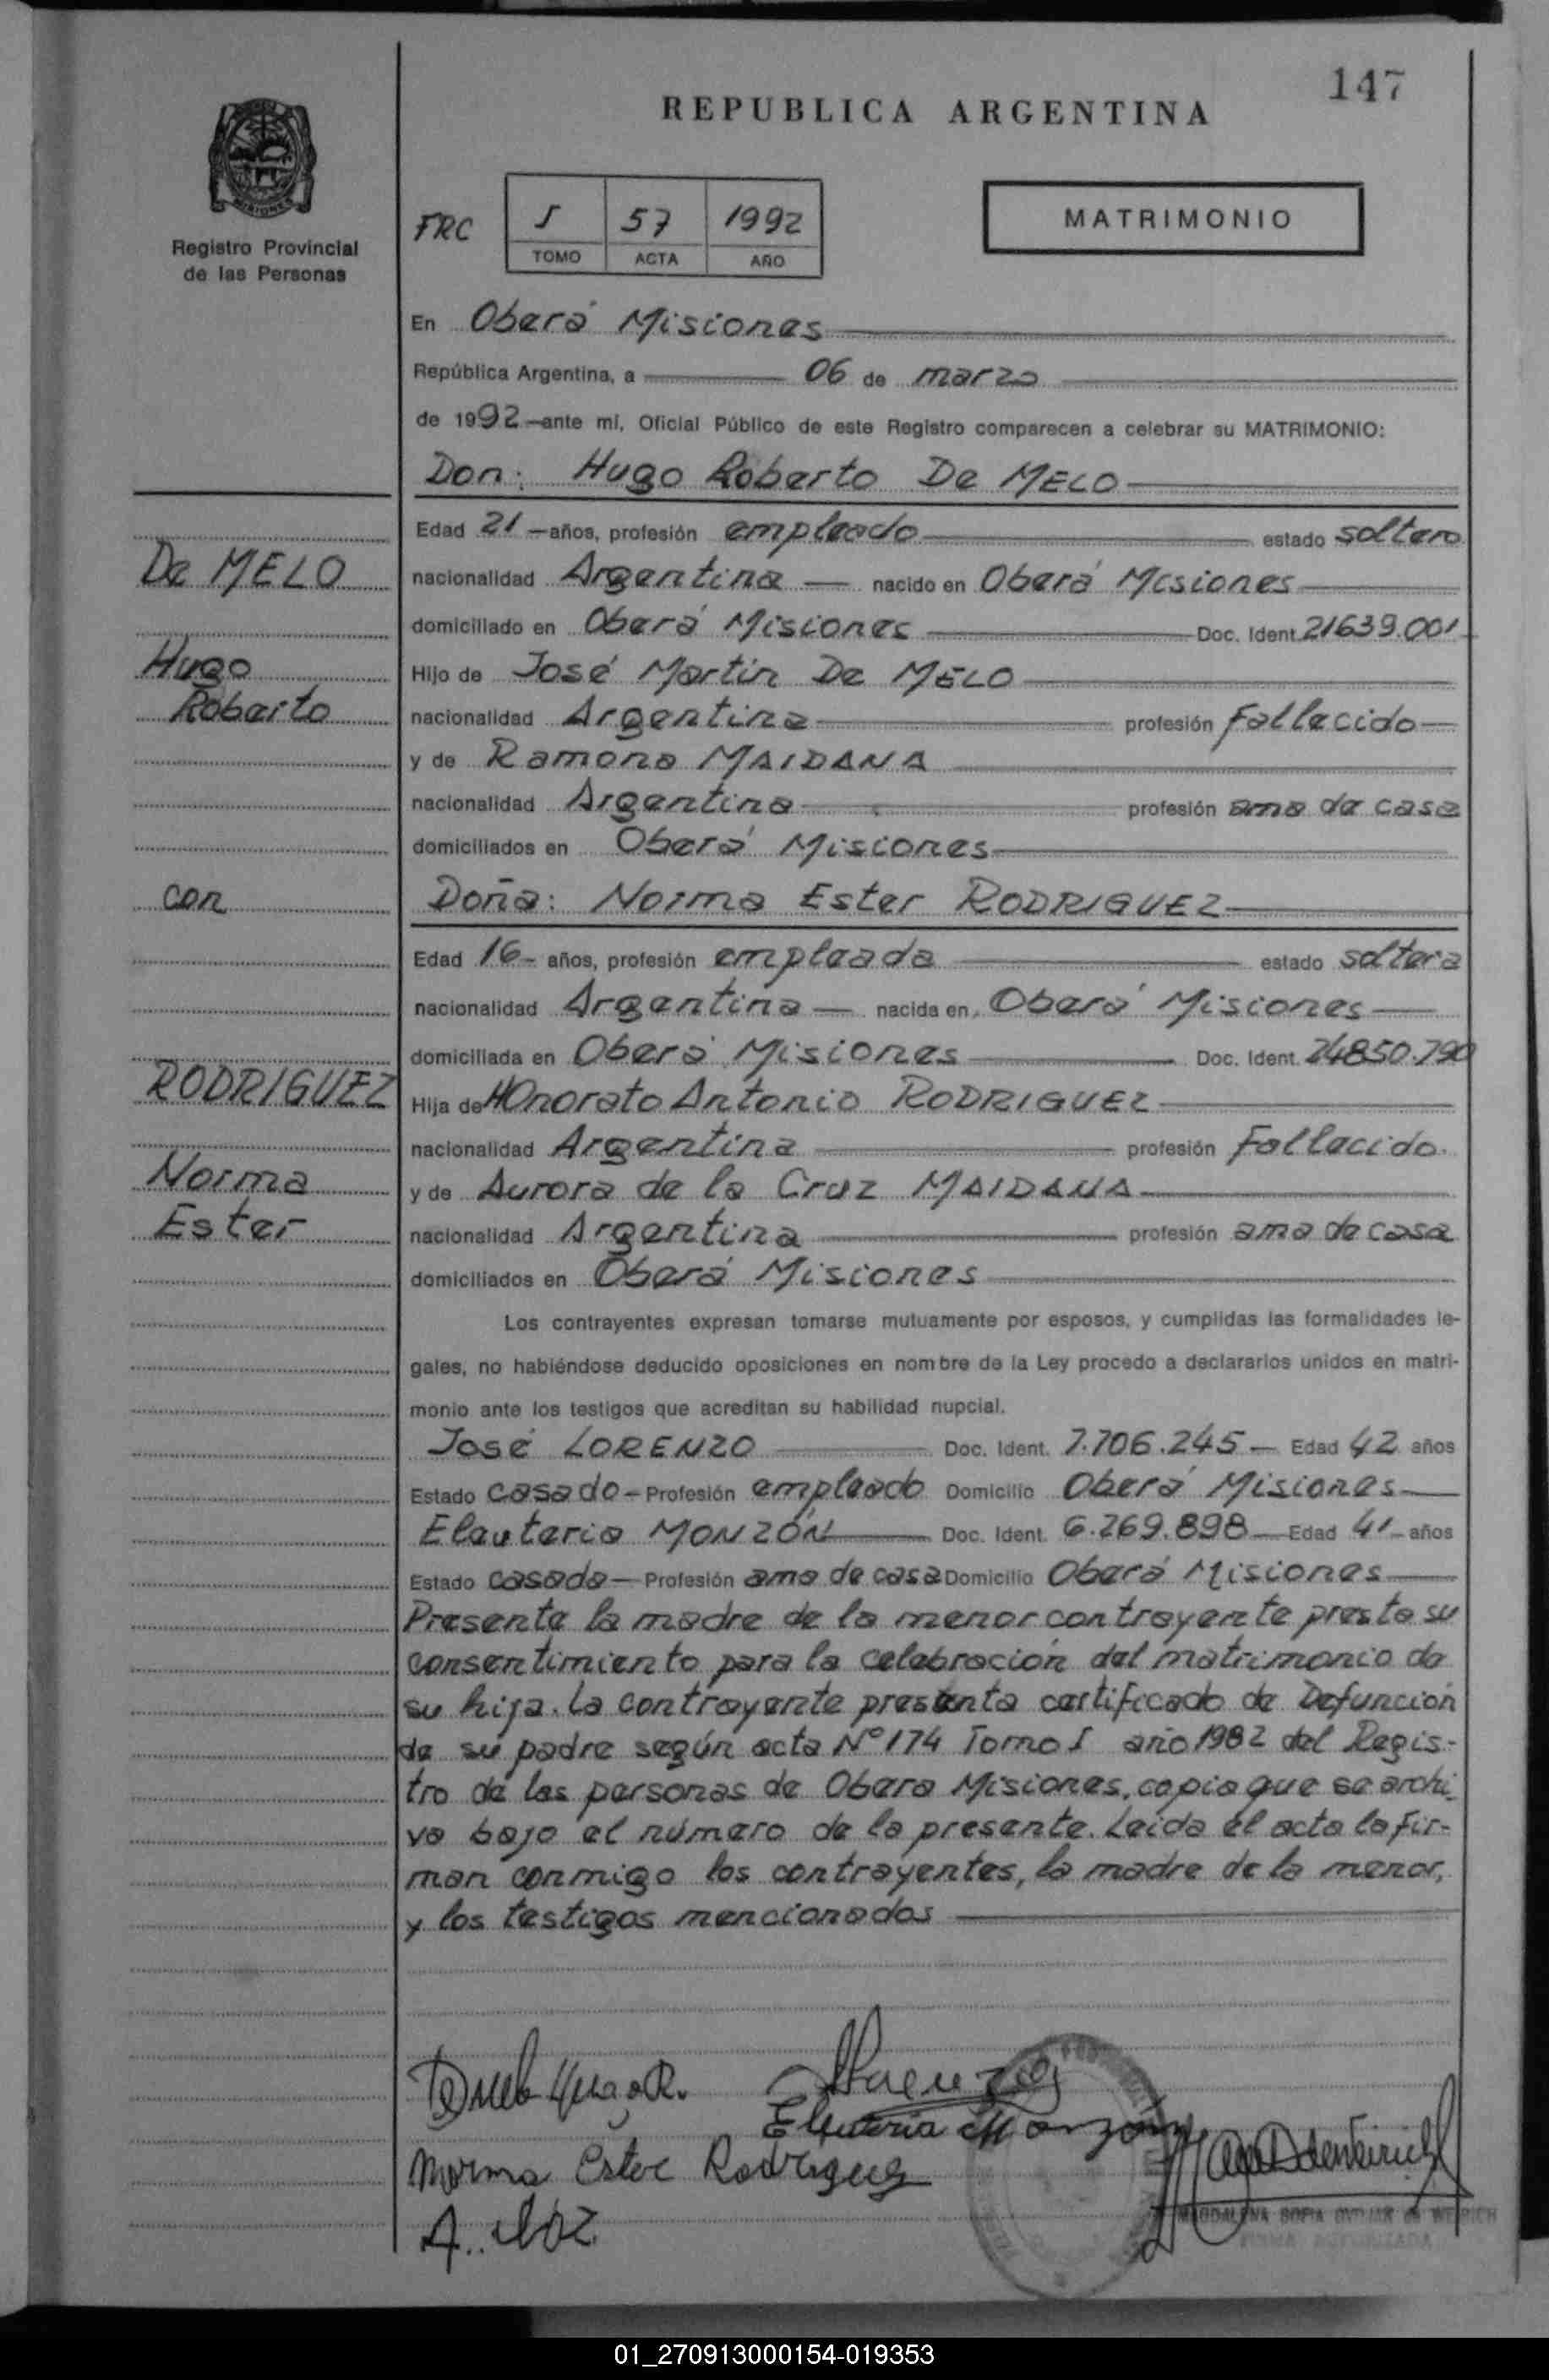 147
REPUBLICA ARGENTINA
MISIONES
Registro Provincial
de las Personas
FRC
I 57 1992
TOMO ACTA AÑO
MATRIMONIO
En Oberá Misiones
República Argentina, a 06 de marzo
de 1992 ante mí, Oficial Público de este Registro comparecen a celebrar su MATRIMONIO:
Don: Hugo Roberto De MELO
Edad 21 años, profesión empleado estado soltero
De MELO
nacionalidad Argentina nacido en Oberá Misiones
domiciliado en Oberá Misiones Doc. Ident. 21639.001
Hugo
Hijo de José Martin De MELO
Roberto
nacionalidad Argentina profesión Fallecido
y de Ramona MAIDANA
nacionalidad Argentina profesión ama de casa
domiciliados en Oberá Misiones
con
Doña: Norma Ester RODRIGUEZ
Edad 16 años, profesión empleada estado soltera
nacionalidad Argentina nacida en Oberá Misiones
domiciliada en Oberá Misiones Doc. Ident. 24850.790
RODRIGUEZ
Hija de HOnorato Antonio RODRIGUEZ
nacionalidad Argentina profesión Fallecido.
Norma
y de Aurora de la Cruz MAIDANA
Ester
nacionalidad Argentina profesión ama de casa
domiciliados en Oberá Misiones
Los contrayentes expresan tomarse mutuamente por esposos, y cumplidas las formalidades le-
gales, no habiéndose deducido oposiciones en nombre de la Ley procedo a declararlos unidos en matri-
monio ante los testigos que acreditan su habilidad nupcial.
José LORENZO Doc. Ident. 7.706.245 Edad 42 años
Estado casado Profesión empleado Domicilio Oberá Misiones
Eleuteria MONZÓN Doc. Ident. 6.269.898 Edad 41 años
Estado casada Profesión ama de casa Domicilio Oberá Misiones
Presente la madre de la menor contrayente presta su
consentimiento para la celebración del matrimonio de
su hija. La contrayente presenta certificado de Defunción
de su padre según acta Nº 174 Tomo I año 1982 del Regis-
tro de las personas de Obera Misiones, copia que se archi-
va bajo el número de la presente. Leida el acta la fir-
man conmigo los contrayentes, la madre de la menor,
y los testigos mencionados
Hugo R.
Eleuteria Monzón
Norma Ester Rodriguez
MAGDALENA SOFIA
FIRMA AUTORIZADA
01_270913000154-019353